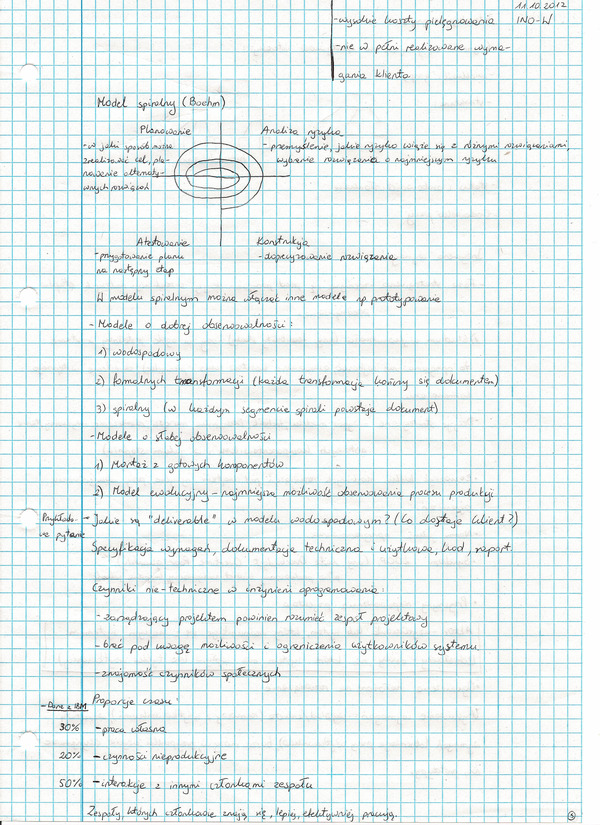 11.10.2012
INO-W
-wysokie koszty pielęgnowania
-nie w pełni realizowane wyma-
gania klienta
Model spiralny (Boehm)
Planowanie
-w jaki sposób można
zrealizować cel, pla-
nowanie alternaty-
wnych rozwiązań
Analiza ryzyka
-przemyślenie, jakie ryzyko wiąże się z różnymi rozwiązaniami,
wybranie rozwiązania o najmniejszym ryzyku
Atestowanie
-przygotowanie planu
na następny etap
Konstrukcja
-dopecyzowanie rozwiązania
W modelu spiralnym można włączać inne modele np prototypowanie
-Modele o dobrej obserwowalności:
1) wodospadowy
2) formalnych transformacji (każda transformacja kończy się dokumentem)
3) spiralny (w każdym segmencie spirali powstaje dokument)
-Modele o słabej obserwowalności
1) Montaż z gotowych komponentów
2) Model ewolucyjny - najmniejsza możliwość obserwowania procesu produkcji
Przykłado-
we pytanie
- Jakie są "deliverable" w modelu wodospadowym? (Co dostaje klient?)
Specyfikacja wymagań, dokumentacja techniczna i użytkowa, kod, raport.
Czynniki nie-techniczne w inżynierii oprogramowania:
-zarządzający projektem powinien rozumieć zespół projektowy
-brać pod uwagę możliwości i ograniczenia użytkowników systemu
-znajomość czynników społecznych
-Dane z IBM
Proporcje czasu:
30% -praca własna
20% -czynności nieprodukcyjne
50% -interakcje z innymi członkami zespołu
Zespoły, których członkowie znają się, lepiej, efektywniej pracują.
3